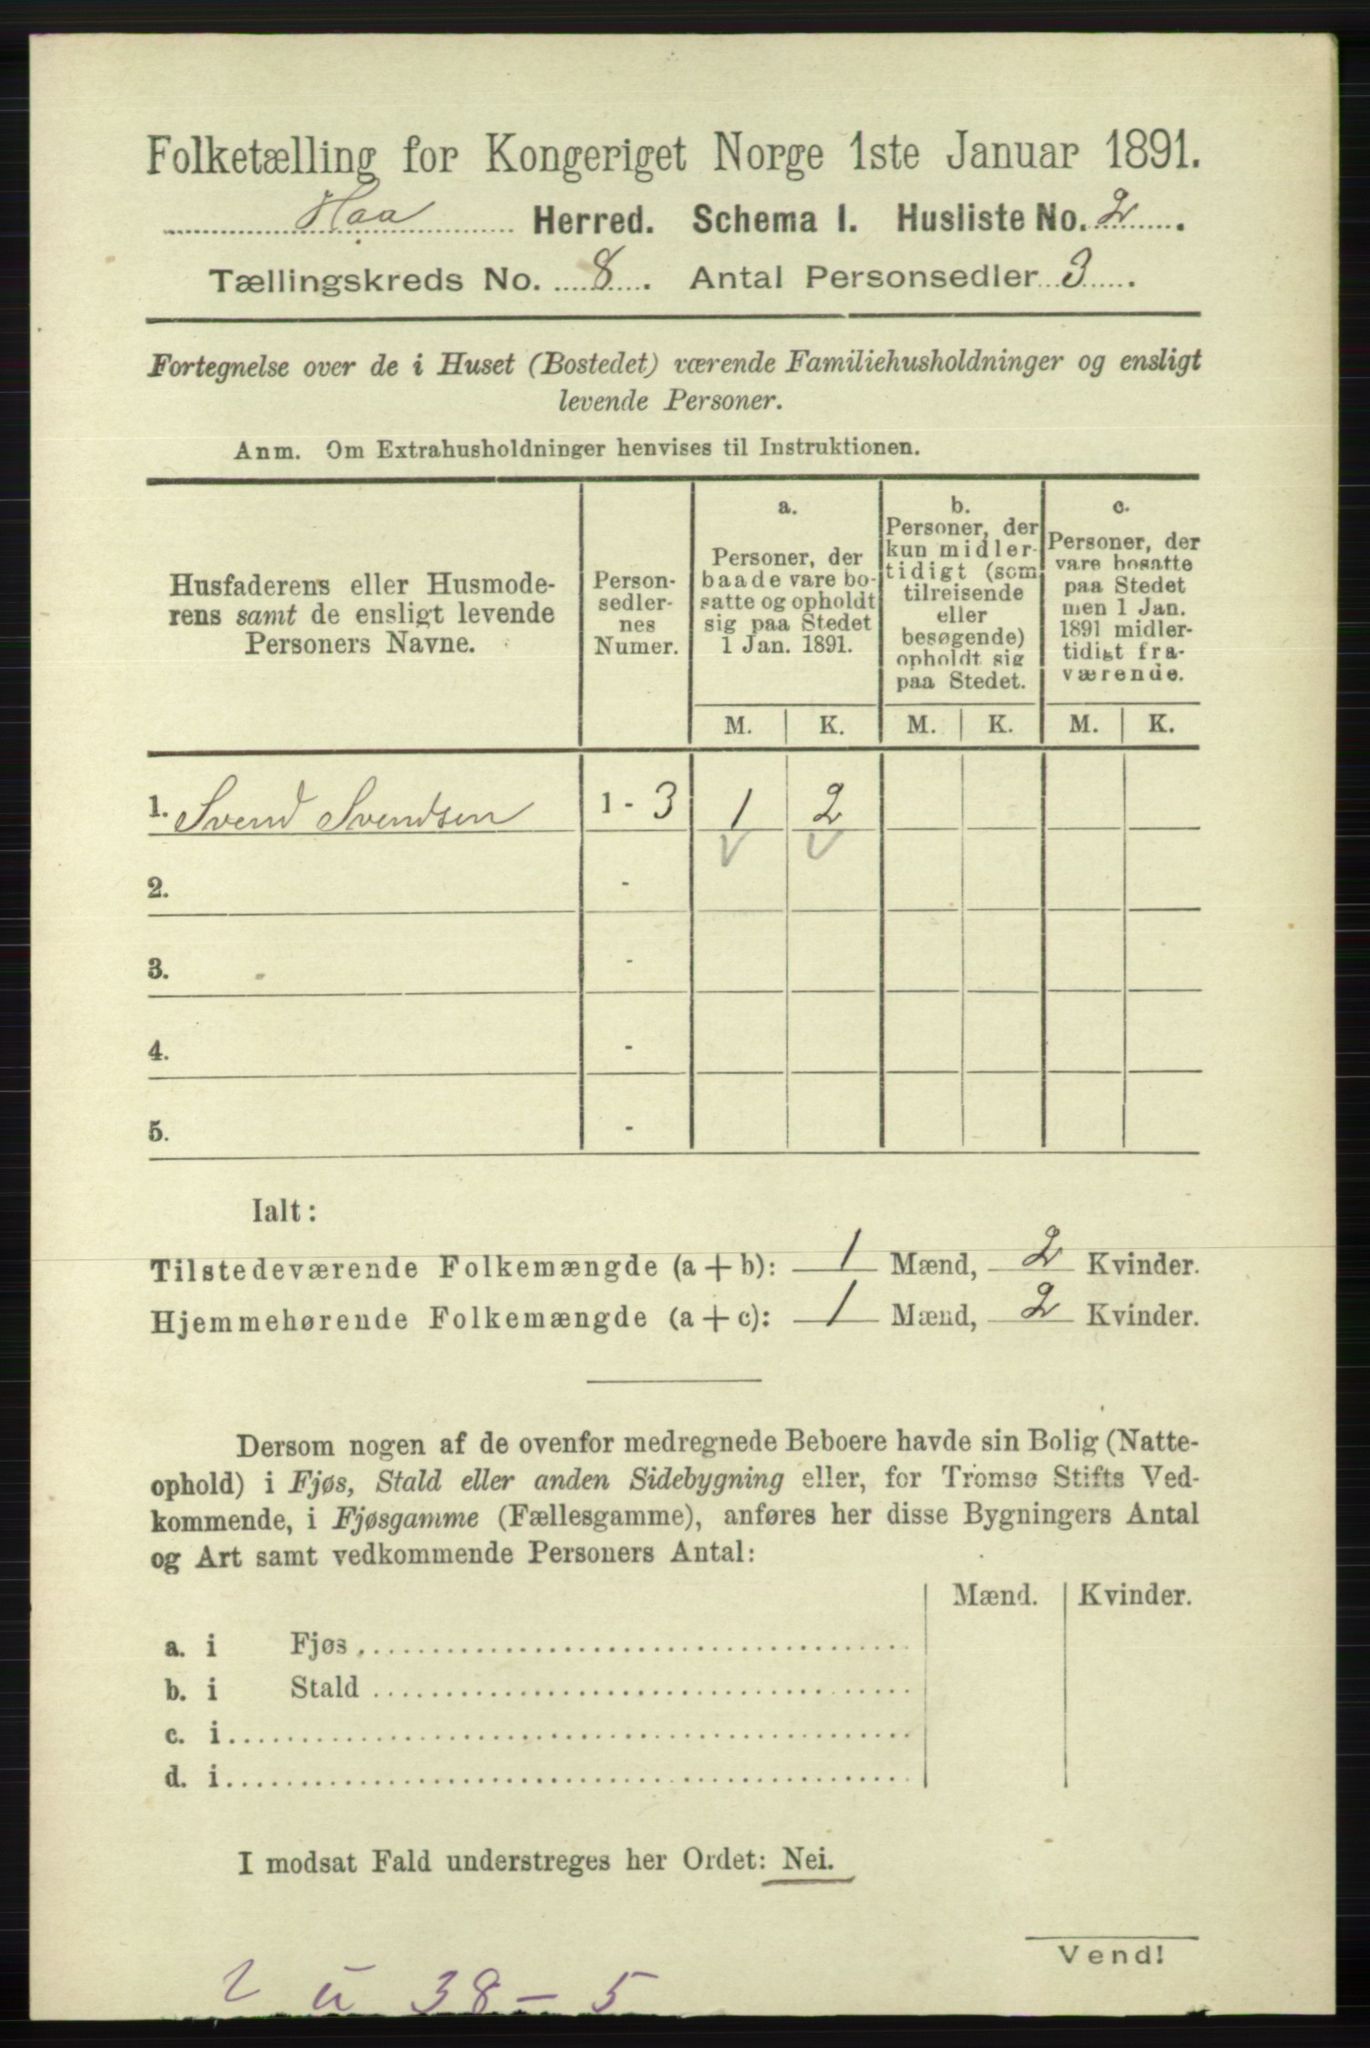 Folketælling for Kongeriget Norge 1ste Januar 1891.
Haa Herred. Schema I. Husliste No. 2.
Tællingskreds No. 8. Antal Personsedler 3.
Fortegnelse over de i Huset (Bostedet) værende Familiehusholdninger og ensligt
levende Personer.
Anm. Om Extrahusholdninger henvises til Instruktionen.
Husfaderens eller Husmode-
rens samt de ensligt levende
Personers Navne.
Person-
sedler-
nes
Numer.
a.
Personer, der
baade vare bo-
satte og opholdt
sig paa Stedet
1 Jan. 1891.
b.
Personer, der
kun midler-
tidigt (som
tilreisende
eller
besøgende)
opholdt sig
paa Stedet.
c.
Personer, der
vare bosatte
paa Stedet
men 1 Jan.
1891 midler-
tidigt fra-
værende.
M. K. M. K. M. K.
1. Svend Svendsen 1 - 3 1 2
2. -
3. -
4. -
5. -
Ialt:
Tilstedeværende Folkemængde (a + b): 1 Mænd, 2 Kvinder.
Hjemmehørende Folkemængde (a + c): 1 Mænd, 2 Kvinder.
Dersom nogen af de ovenfor medregnede Beboere havde sin Bolig (Natte-
ophold) i Fjøs, Stald eller anden Sidebygning eller, for Tromsø Stifts Ved-
kommende, i Fjøsgamme (Fællesgamme), anføres her disse Bygningers Antal
og Art samt vedkommende Personers Antal:
Mænd. Kvinder.
a. i Fjøs
b. i Stald
c. i
d. i
I modsat Fald understreges her Ordet: Nei.
Vend!
38 - 5